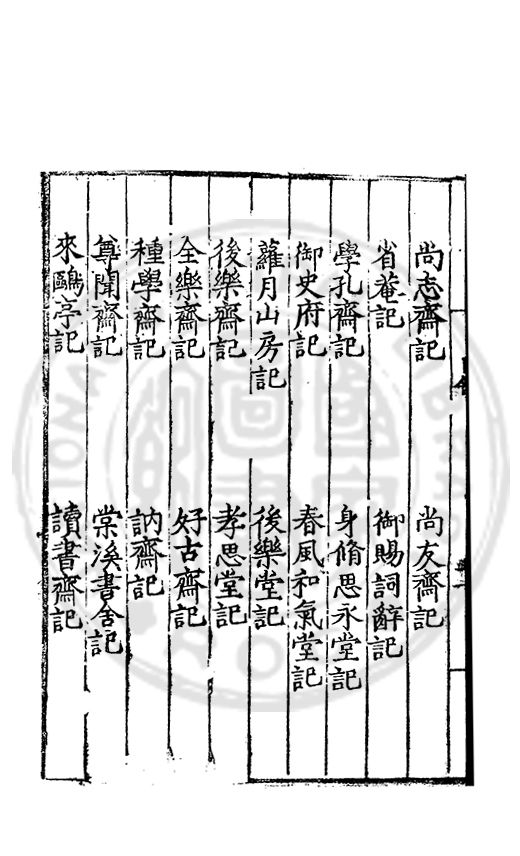 尚志齋記 尚友齋記
省菴記 御賜詞辭記
學孔齋記 身脩思永堂記
御史府記 春風和氣堂記
蘿月山房記 後樂堂記
後樂齋記 孝思堂記
全樂齋記 好古齋記
種學齋記 訥齋記
尊聞齋記 棠溪書舍記
來鷗亭記 讀書齋記